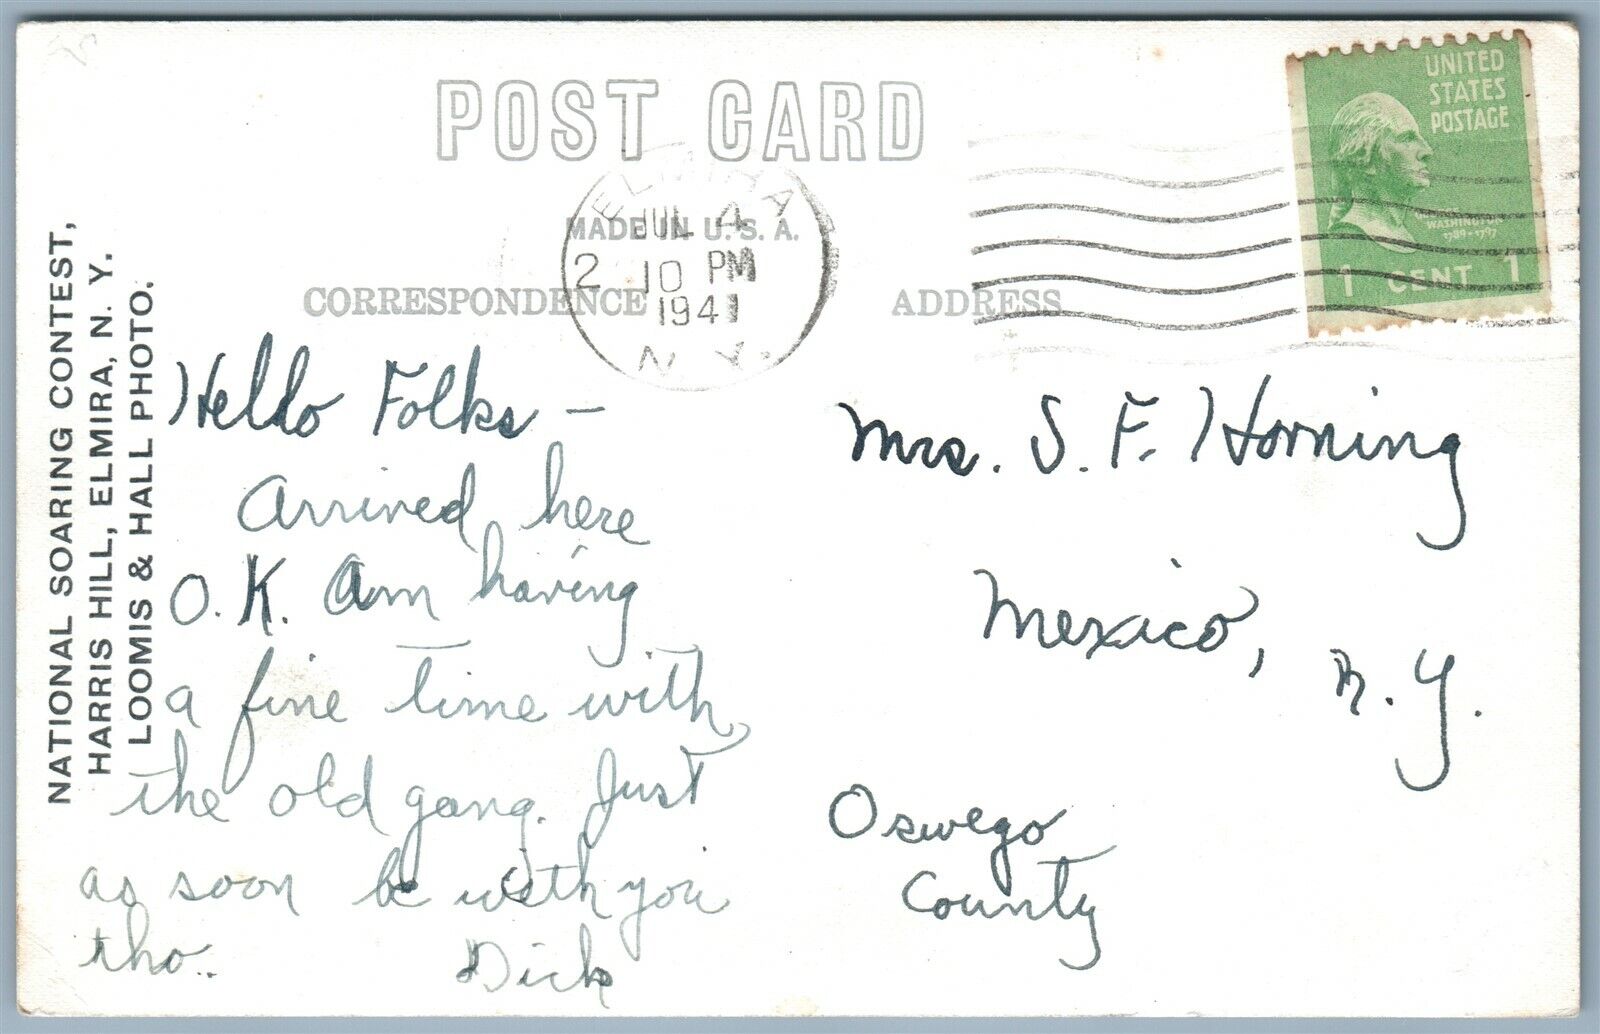 POST CARD
UNITED
STATES
POSTAGE
GEORGE
WASHINGTON
1789-1797
1 CENT 1
ELMIRA
JUL 4
2 10 PM
1941
N.Y.
MADE IN U.S.A.
CORRESPONDENCE
ADDRESS
NATIONAL SOARING CONTEST,
HARRIS HILL, ELMIRA, N. Y.
LOOMIS & HALL PHOTO.
Hello Folks –
Arrived here
O.K. Am having
a fine time with
the old gang. Just
as soon be with you
tho..
Dick
Mrs. S. F. Horning
Mexico, N.Y.
Oswego
County